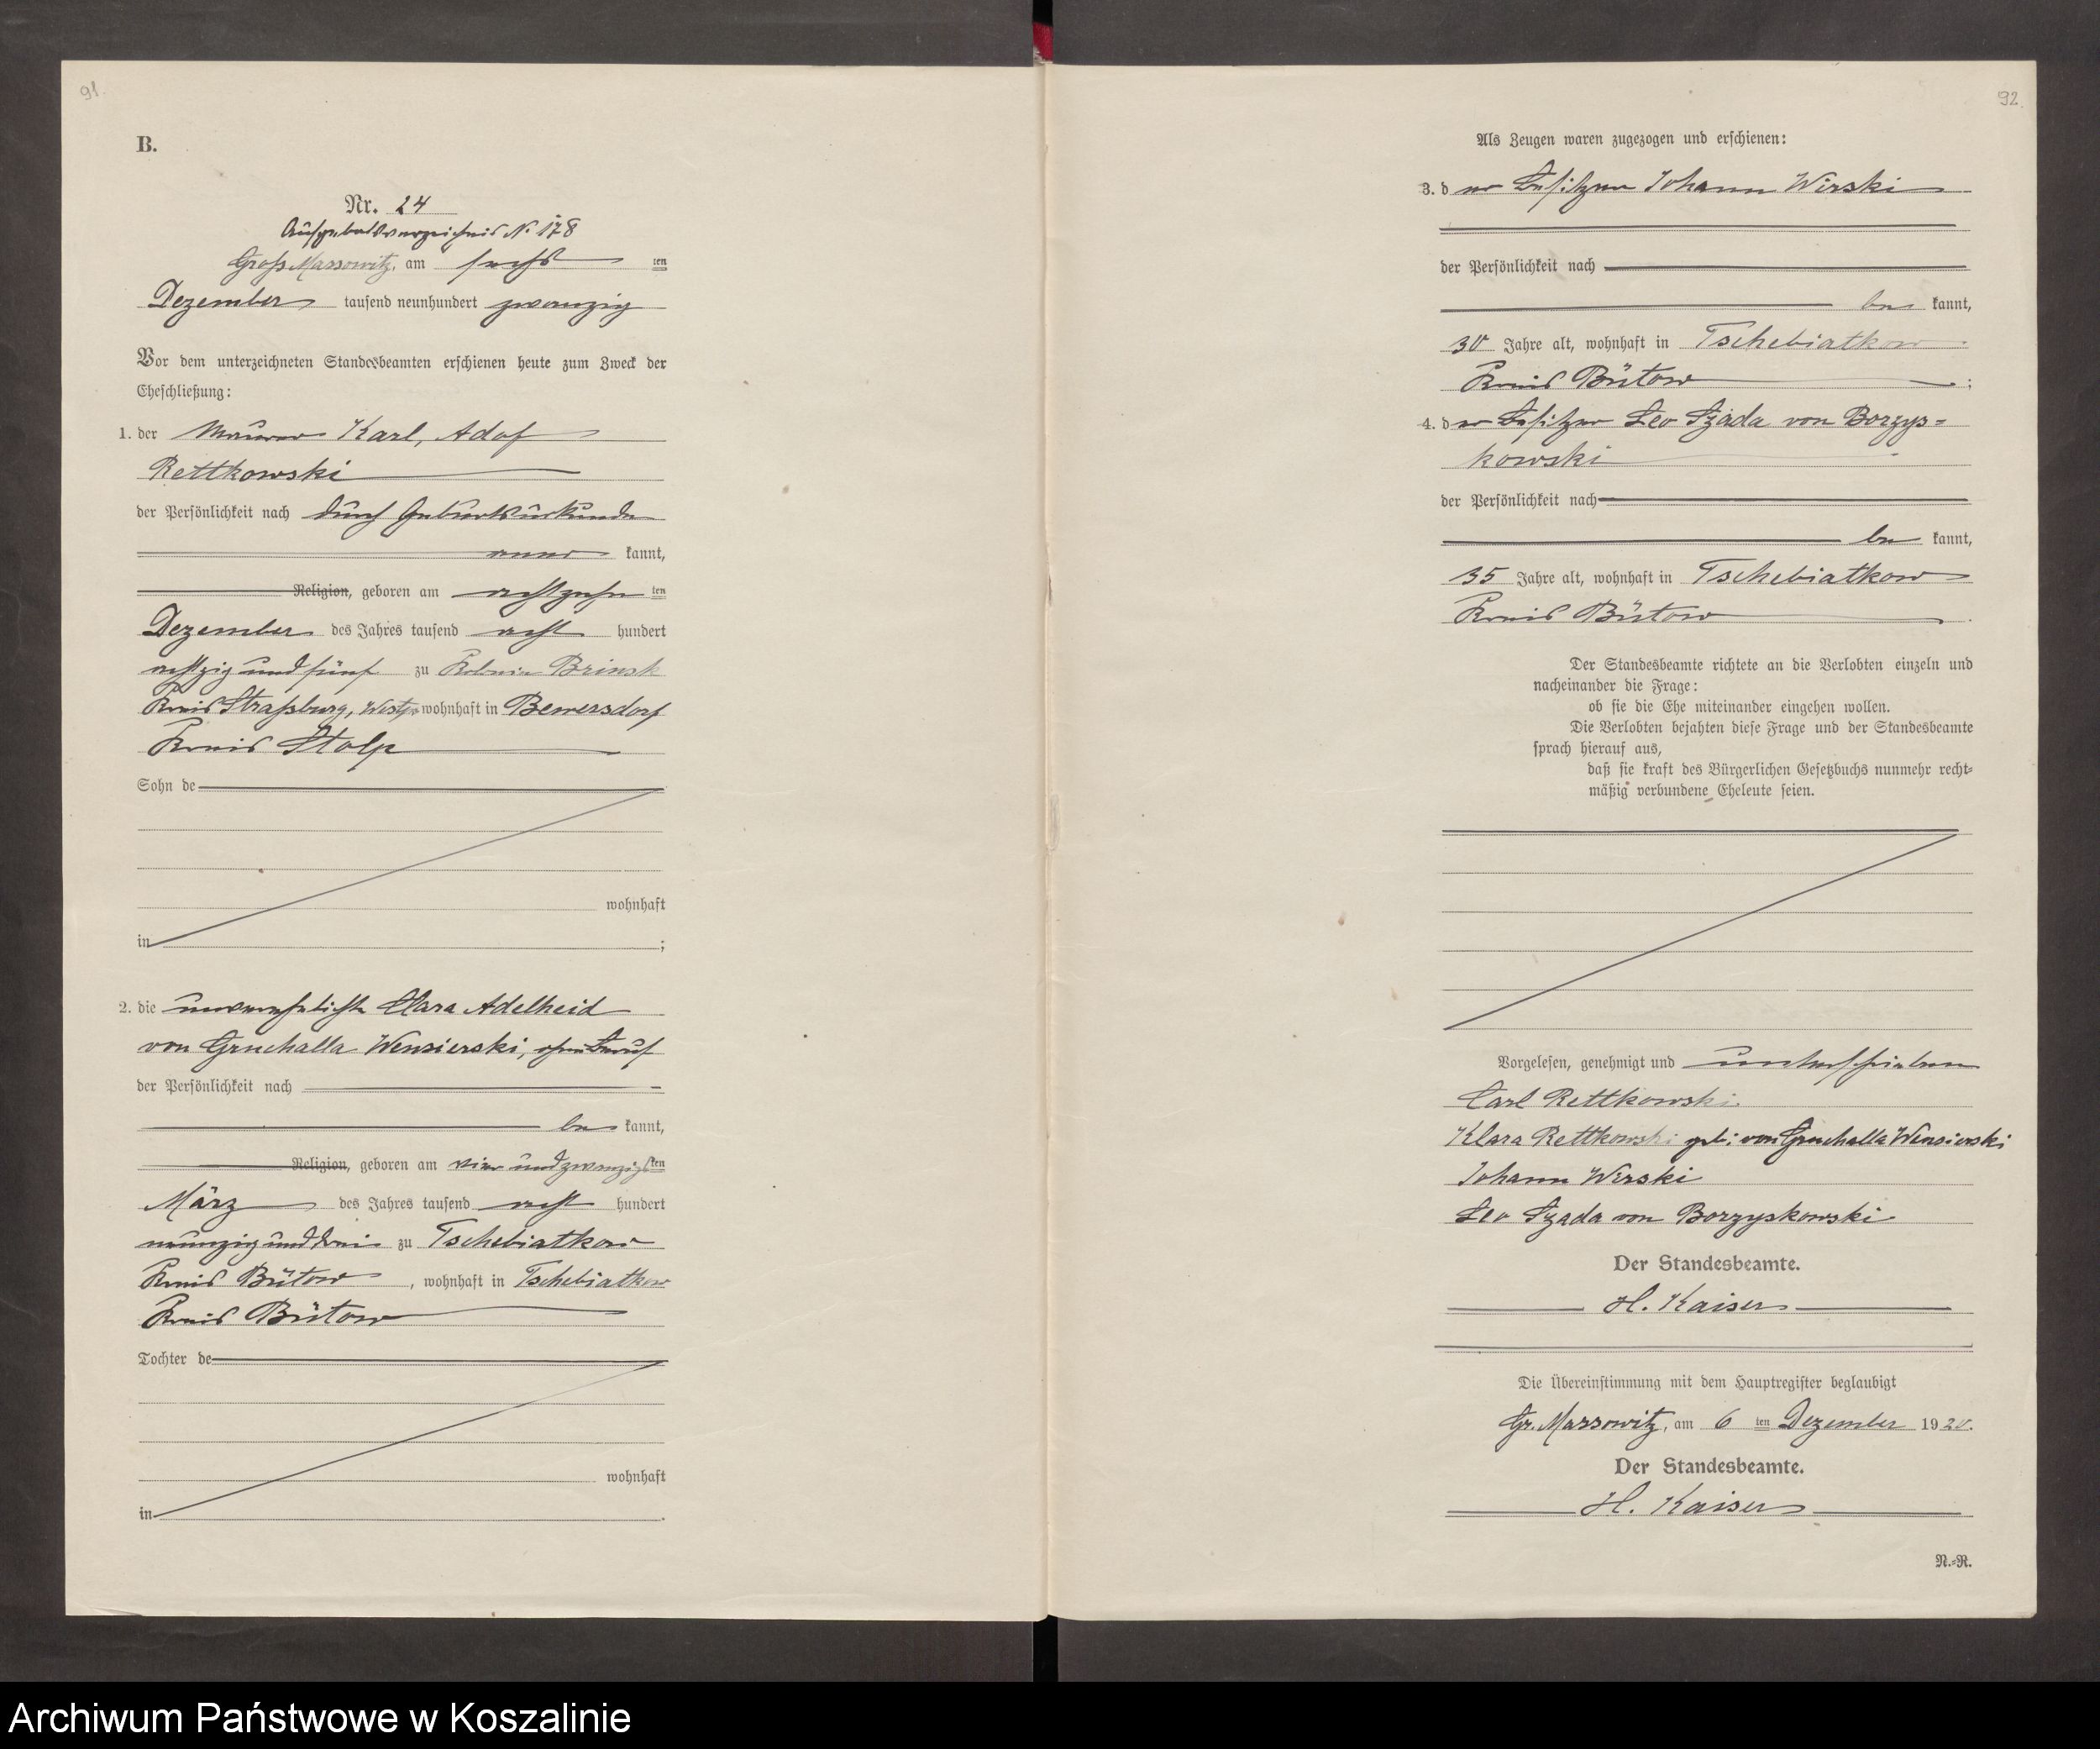 91.
B.
Nr. 24
Aufgebotsverzeichnis N. 178
Gross Massowitz, am sechs ten
Dezember tausend neunhundert zwanzig
Vor dem unterzeichneten Standesbeamten erschienen heute zum Zweck der
Eheschließung:
1. der Maurer Karl, Adof
Rettkowski
der Persönlichkeit nach durch Geburtsurkunde
aner kannt,
Religion, geboren am achtzehn ten
Dezember des Jahres tausend acht hundert
achtzig und fünf zu Kolonie Brinsk
Kreis Strassburg, Westpr. wohnhaft in Bewersdorf
Kreis Stolp
Sohn de
wohnhaft
in ;
2. die unverehelichte Clara Adelheid
von Gruchalla Wensierski, ohne Beruf
der Persönlichkeit nach
be kannt,
Religion, geboren am vier und zwanzigsten
März des Jahres tausend acht hundert
neunzig und drei zu Tschebiatkow
Kreis Bütow, wohnhaft in Tschebiatkow
Kreis Bütow
Tochter de
wohnhaft
in .
92.
Als Zeugen waren zugezogen und erschienen:
3. der Besitzer Johann Wirski
der Persönlichkeit nach
be kannt,
30 Jahre alt, wohnhaft in Tschebiatkow
Kreis Bütow ;
4. der Besitzer Leo Szada von Borzys=
kowski
der Persönlichkeit nach
be kannt,
35 Jahre alt, wohnhaft in Tschebiatkow
Kreis Bütow .
Der Standesbeamte richtete an die Verlobten einzeln und
nacheinander die Frage:
ob sie die Ehe miteinander eingehen wollen.
Die Verlobten bejahten diese Frage und der Standesbeamte
sprach hierauf aus,
daß sie kraft des Bürgerlichen Gesetzbuchs nunmehr recht=
mäßig verbundene Eheleute seien.
Vorgelesen, genehmigt und unterschrieben
Carl Rettkowski
Klara Rettkowski geb: von Gruchalla Wensierski
Johann Wirski
Leo Szada von Borzyskowski
Der Standesbeamte.
H. Kaiser
Die Übereinstimmung mit dem Hauptregister beglaubigt
Gr. Massowitz, am 6 ten Dezember 1920.
Der Standesbeamte.
H. Kaiser
N.=R.
Archiwum Państwowe w Koszalinie